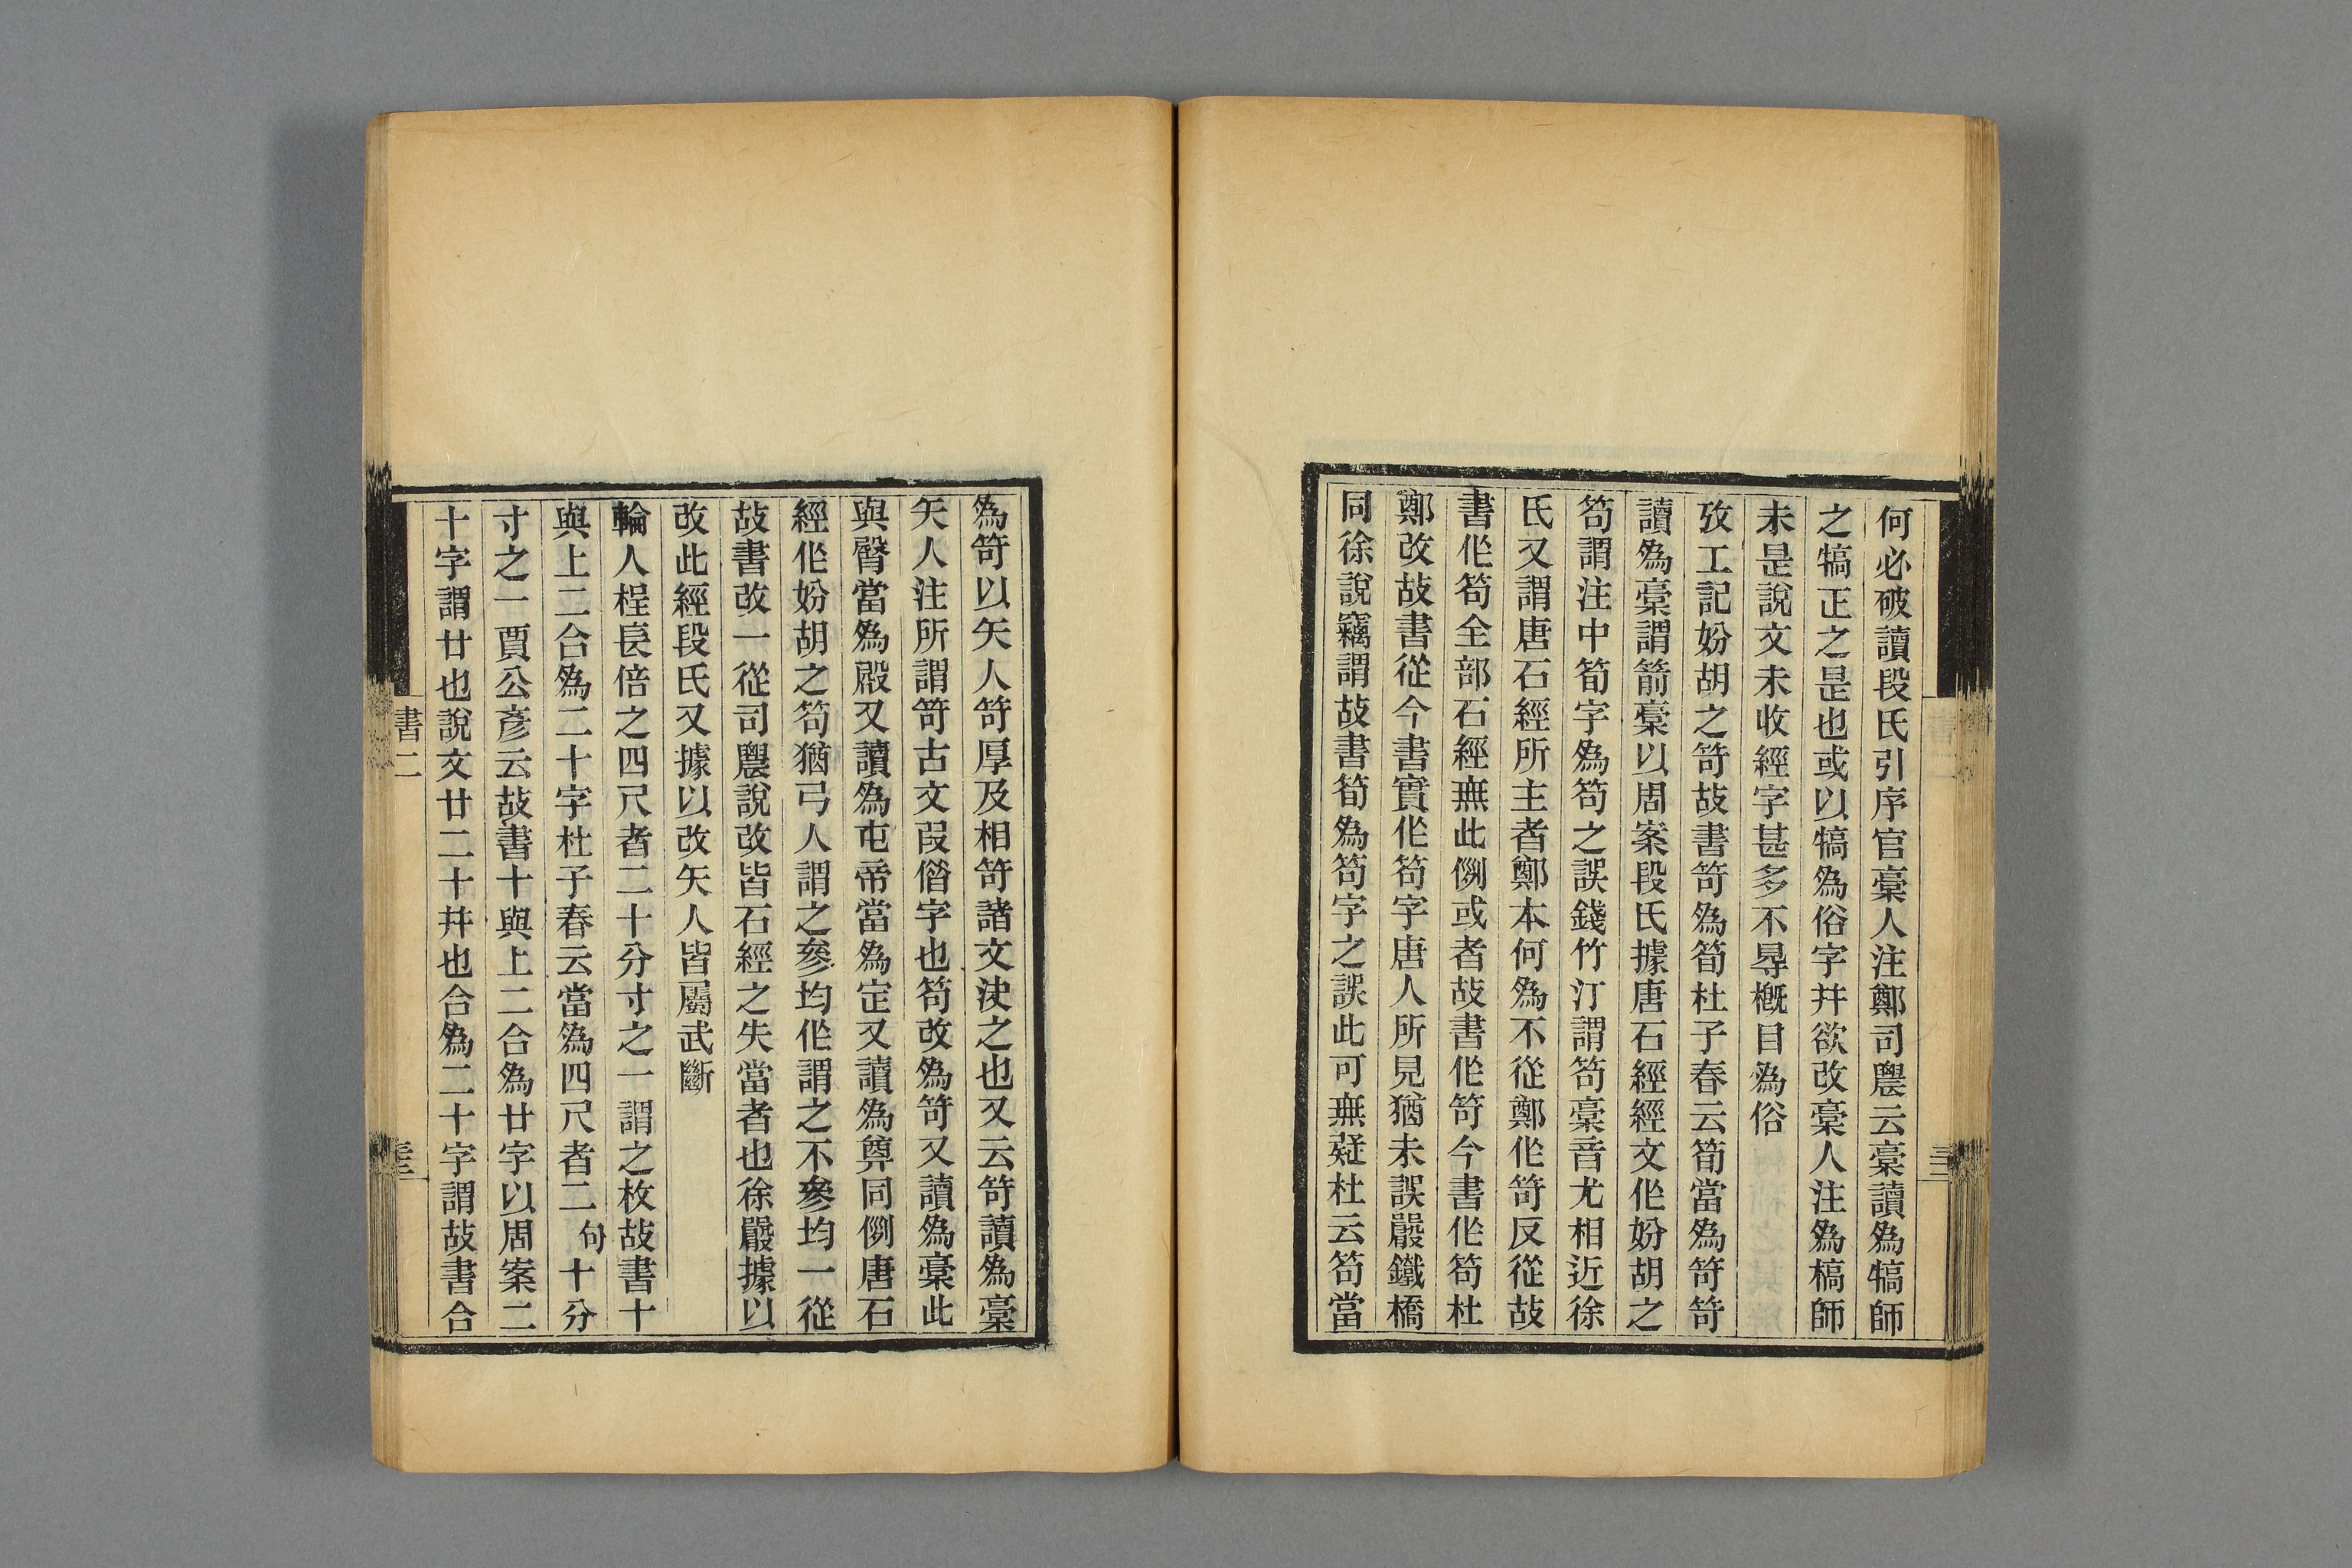 何必破讀段氏引序官稾人注鄭司農云稾讀爲犒師
之犒正之是也或以犒爲俗字幷欲改稾人注爲槁師
未是說文未收經字甚多不㝵槪目爲俗
攷工記妢胡之笴故書笴爲筍杜子春云筍當爲笴笴
讀爲稾謂箭稾以周案段氏據唐石經經文作妢胡之
笱謂注中筍字爲笱之誤錢竹汀謂笱稾音尤相近徐
氏又謂唐石經所主者鄭本何爲不從鄭作笴反從故
書作笱全部石經無此例或者故書作笴今書作笱杜
鄭改故書從今書實作笱字唐人所見猶未誤嚴鐵橋
同徐說竊謂故書筍爲笱字之誤此可無疑杜云笱當
爲笴以矢人笴厚及相笴諸文決之也又云笴讀爲稾
矢人注所謂笴古文叚借字也笱改爲笴又讀爲稾此
與臀當爲殿又讀爲屯帝當爲定又讀爲奠同例唐石
經作妢胡之笱猶弓人謂之參均作謂之不參均一從
故書改一從司農說改皆石經之失當者也徐嚴據以
改此經段氏又據以改矢人皆屬武斷
輪人桯長倍之四尺者二十分寸之一謂之枚故書十
與上二合爲二十字杜子春云當爲四尺者二句十分
寸之一賈公彥云故書十與上二合爲廿字以周案二
十字謂廿也說文廿二十幷也合爲二十字謂故書合
書二